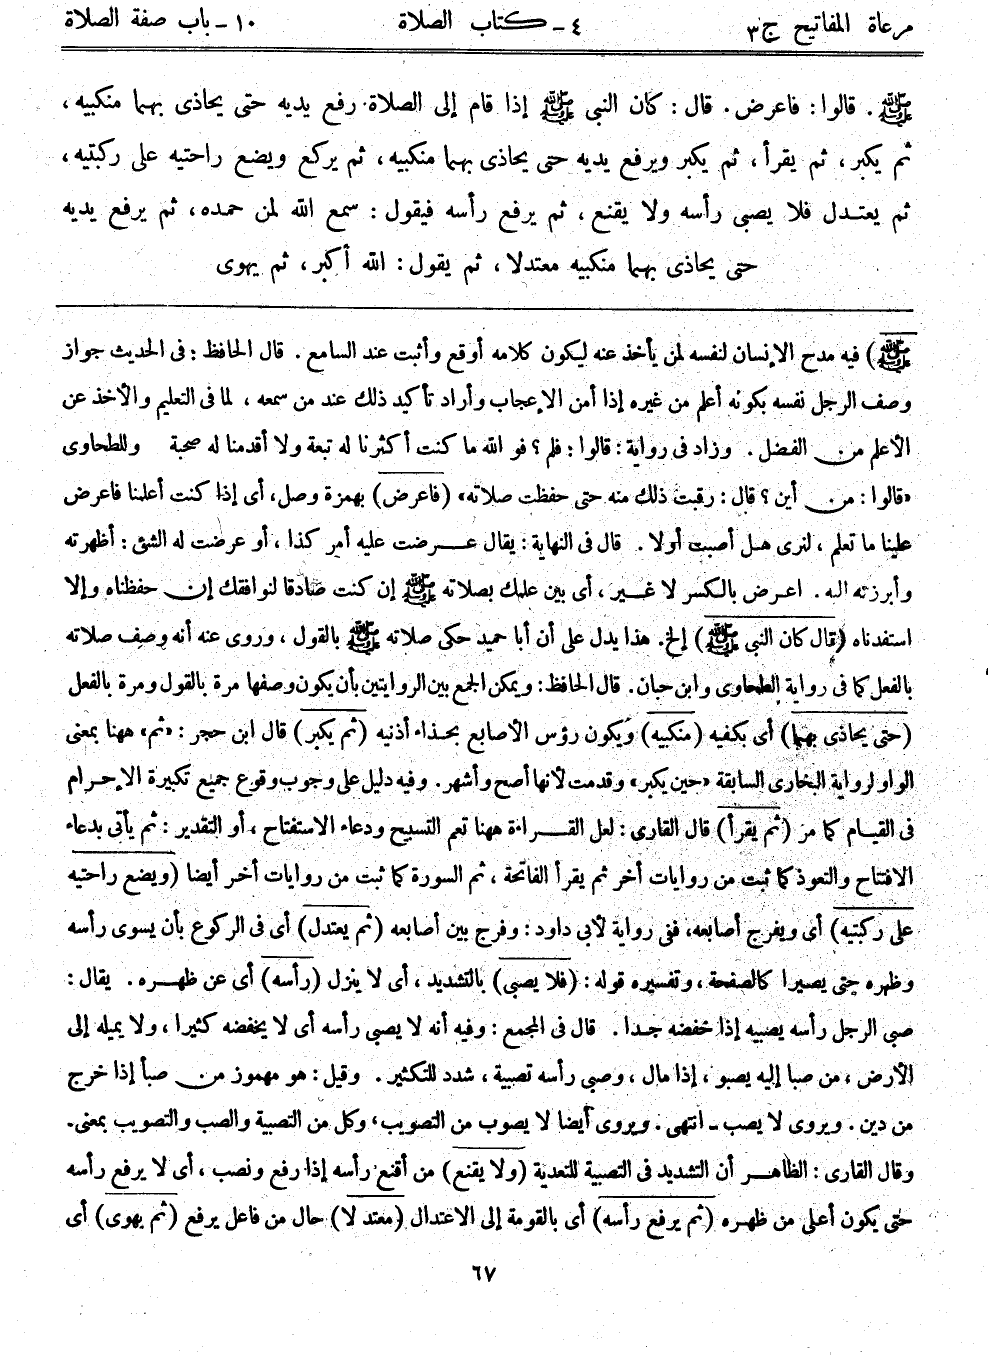 مرعاة المفاتيح ج٣ ٤ - كتاب الصلاة ١٠ - باب صفة الصلاة
ﷺ. قالوا: فاعرض. قال: كان النبى ﷺ إذا قام إلى الصلاة رفع يديه حتى يحاذى بهما منكبيه،
ثم يكبر، ثم يقرأ، ثم يكبر ويرفع يديه حتى يحاذى بهما منكبيه، ثم يركع ويضع راحتيه على ركبتيه،
ثم يعتدل فلا يصبى رأسه ولا يقنع، ثم يرفع رأسه فيقول: سمع الله لمن حمده، ثم يرفع يديه
حتى يحاذى بهما منكبيه معتدلا، ثم يقول: الله أكبر، ثم يهوى
ﷺ) فيه مدح الإنسان لنفسه لمن يأخذ عنه ليكون كلامه أوقع وأثبت عند السامع. قال الحافظ: فى الحديث جواز
وصف الرجل نفسه بكونه أعلم من غيره إذا أمن الإعجاب وأراد تأكيد ذلك عند من سمعه، لما فى التعليم والأخذ عن
الأعلم من الفضل. وزاد فى رواية: قالوا: فلم؟ فو الله ما كنت أكثرنا له تبعة ولا أقدمنا له صحبة وللطحاوى
«قالوا: من أين؟ قال: رقبت ذلك منه حتى حفظت صلاته» (فاعرض) بهمزة وصل، أى إذا كنت أعلمنا فاعرض
علينا ما تعلم، لنرى هل أصبت أولا. قال فى النهاية: يقال عرضت عليه أمر كذا، أو عرضت له الشئ: أظهرته
وأبرزته اليه. اعرض بالكسر لا غير، أى بين علمك بصلاته ﷺ إن كنت صادقا لنوافقك إن حفظناه وإلا
استفدناه (قال كان النبى ﷺ) إلخ. هذا يدل على أن أبا حميد حكى صلاته ﷺ بالقول، وروى عنه أنه وصف صلاته
بالفعل كما فى رواية الطحاوى وابن حبان. قال الحافظ: ويمكن الجمع بين الروايتين بأن يكون وصفها مرة بالقول ومرة بالفعل
(حتى يحاذى بهما) أى بكفيه (منكبيه) ويكون رؤس الأصابع بحذاء أذنيه (ثم يكبر) قال ابن حجر: «ثم» ههنا بمعنى
الواو لرواية البخارى السابقة «حين يكبر» وقدمت لأنها أصح وأشهر. وفيه دليل على وجوب وقوع جميع تكبيرة الإحرام
فى القيام كما مر (ثم يقرأ) قال القارى: لعل القراءة ههنا تعم التسبيح ودعاء الاستفتاح، أو التقدير: ثم يأتى بدعاء
الافتتاح والتعوذ كما ثبت من روايات أخر ثم يقرأ الفاتحة، ثم السورة كما ثبت من روايات أخر أيضا (ويضع راحتيه
على ركبتيه) أى ويفرج أصابعه، ففى رواية لأبى داود: وفرج بين أصابعه (ثم يعتدل) أى فى الركوع بأن يسوى رأسه
وظهره حتى يصيرا كالصفحة، وتفسيره قوله: (فلا يصبى) بالتشديد، أى لا ينزل (رأسه) أى عن ظهره. يقال:
صبى الرجل رأسه يصبيه إذا خفضه جدا. قال فى المجمع: وفيه أنه لا يصبى رأسه أى لا يخفضه كثيرا، ولا يميله إلى
الأرض، من صبا إليه يصبو، إذا مال، وصبى رأسه تصبية، شدد للتكثير. وقيل: هو مهموز من صبأ إذا خرج
من دين. ويروى لا يصب - انتهى. ويروى أيضا لا يصوب من التصويب، وكل من التصبية والصب والتصويب بمعنى.
وقال القارى: الظاهر أن التشديد فى التصبية للتعدية (ولا يقنع) من أقنع رأسه إذا رفع ونصب، أى لا يرفع رأسه
حتى يكون أعلى من ظهره (ثم يرفع رأسه) أى بالقومة إلى الاعتدال (معتدلا) حال من فاعل يرفع (ثم يهوى) أى
٦٧